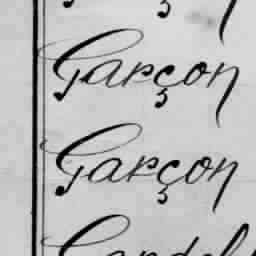 Garçon
Garçon